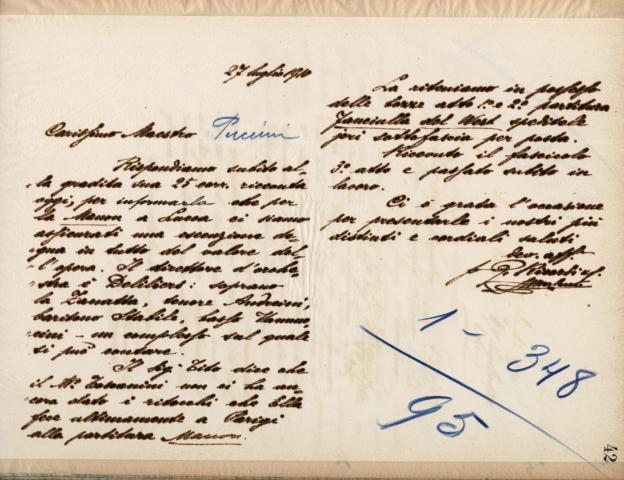 27 luglio 1910
Carissimo Maestro Puccini
Rispondiamo subito al-
la gradita sua 25 corr. ricevuta
oggi, per informarla che per
la Manon a Lucca ci siamo
assicurati una esecuzione de-
gna in tutto del valore del-
l'opera. Il direttore d'orche-
stra è Deliliers: soprano
la Zanatta, tenore
baritono Stabile, basso
cini - un complesso sul quale
si può contare.
Il Sigr Tito dice che
il Mo Toscanini non ci ha an-
cora dato i ritocchi che Ella
fece ultimamente a Parigi
alla partitura Manon.
La riteniamo in possesso
delle bozze atto 1o e 2o partitura
Fanciulla del West speditele
jeri sottofascia per posta.
Ricevuto il fascicolo
3o atto e passato subito in
lavoro.
Ci è grata l'occasione
per presentarle i nostri più
distinti e cordiali saluti
dev. aff.
p. G. Ricordi & C.
1 - 348
95
42